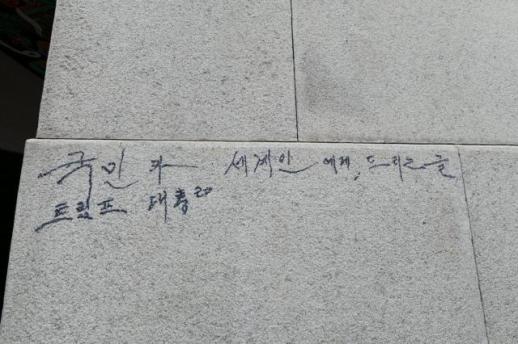 국민과 세계인 에게, 드리는 글
트럼프 대통령